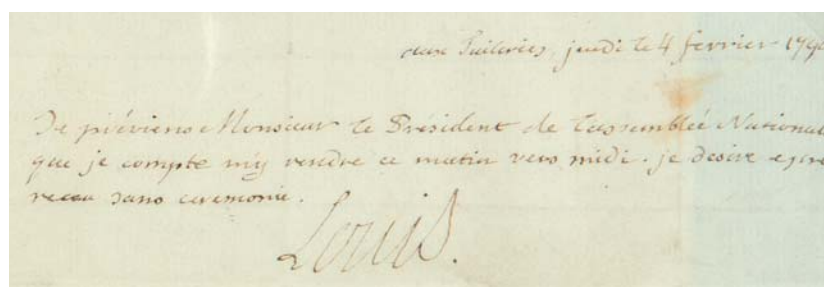 aux Tuileries, jeudi le 4 fevrier 179
Je préviens Monsieur le Président de l'assemblée National
que je compte m'y rendre ce matin vers midi. je desire estre
receu sans ceremonie.
Louis.